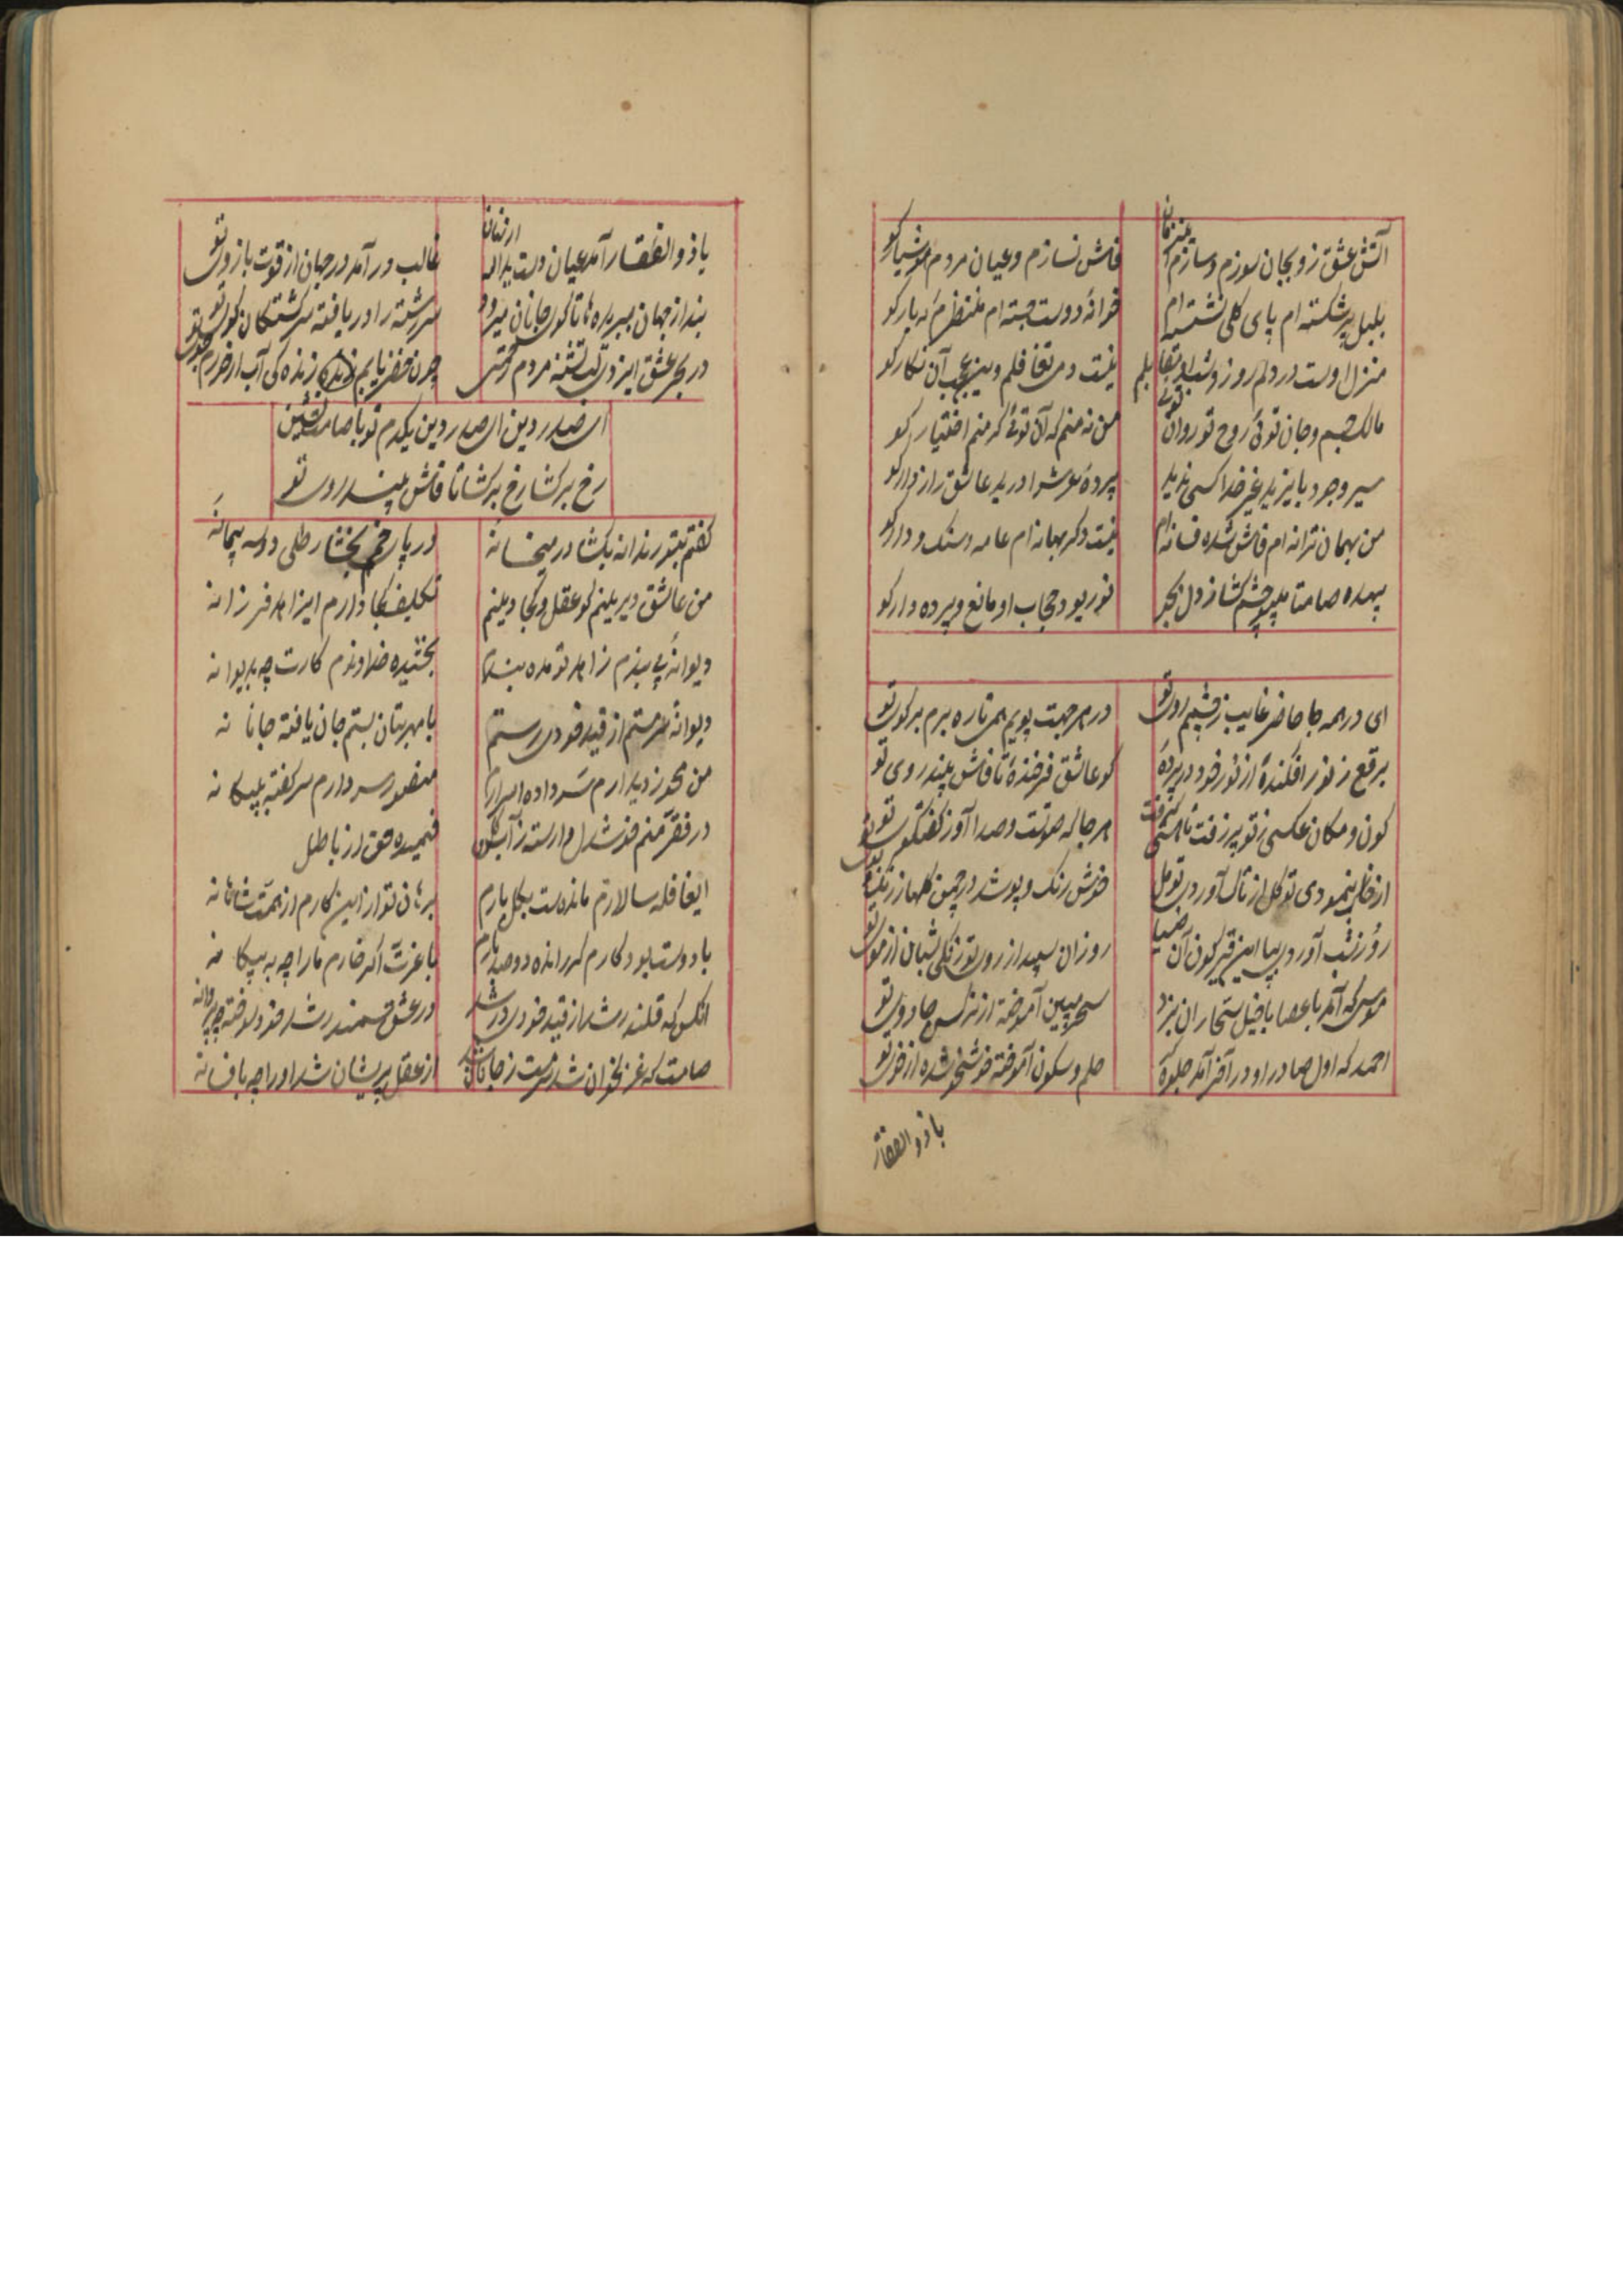 آتش عشق زو بجان سوزم و سازم
فاش نسازم و عیان مردم هوشیار کو
بلبل پر شکسته ام پای کلی نشسته ام
خوانهٔ دوست جسته ام منتظرم که یار کو
منزل اوست در دلم روز و شب
نیست دمی تغافلم وین عجب آن نکار کو
مالک جسم و جان توئی روح تو روان توئی
من نه منم که آن توئی کر منم اختیار کو
سیر وجود بایزید غیر خدا کسی ندید
پردهٔ درید عاشق راز دار کو
من بهمان ترانه ام فاش شده فسانه ام
نیست دکر بهانه ام عامه و سنک و دار کو
بیهده صامتا مپو چشم کشا ز دل
نور بود حجاب او مانع و پرده دار کو
ای در همه جا حاضر غایب ز چشم روی تو
در هر جهت پویم همی تا ره برم بر کوی تو
برقع ز نور افکندهٔ از نور خود در پردهٔ
کو عاشق فرخندهٔ تا فاش بیند روی تو
کون و مکان عکسی ز تو
هر جا که صوتست و صدا آواز کفتکوی تو
از خار بنمودی تو کل از تاک آوردی تو مل
خوش رنک و بو شد در چمن کلها ز رنک
روز ز شب آورد
روزان سپید از روی تو زنکی شبان از موی تو
موسی که آمد با عصا با خیل سحاران نبرد
سحر مبین آموخته از نرکس جادوی تو
احمد که اول صادر او در آخر آمد جلوه
حلم و سکون آموخته خوشخو شده از خوی تو
با ذوالفقار
با ذوالفقار آمد عیان دست ید الله
غالب در آمد در جهان از قوت بازوی تو
بند از جهان ببریده ها تا کوی جانان میرود
سررشته را دریافته سرکشتکان کوی تو
در بحر عشق ایزدی لب تشنه مردم
چون خضر یابم زنده کی آب ار خورم
ای صدر دین ای صدر دین یکدم تو با صامت نشین
رخ برکشا رخ برکشا تا فاش بیند روی تو
کفتم بتو رندانه بکشا در میخانه
در پای خم بخشا رطلی دو سه پیمانه
من عاشق دیرینم کو عقل و کجا دینم
تکلیف کجا دارم ای زاهد فرزانه
دیوانهٔ بی بندم زاهد تو مده پندم
بخشیده خداوندم کارت چه بدیوانه
دیوانهٔ سرمستم از قید خودی رستم
با مهر بتان بستم جان یافته جانانه
من محو ز دیدارم سر داده اسرارم
منصور سر دارم سر کفته ببیکانه
در فقر منم خوشدل وارسته ز آب و کل
فهمیده حق از باطل
ایقافله سالارم مانده ست بکل بارم
برهان تو از این کارم از همت شاهانه
با دوست بود کارم کر رانده دو صد بارم
با غرت اکر خارم ما را چه به بیکانه
آنکس که قلندر شد از قید خودی در شد
در عشق سمندر شد خود سوخته چو پروانه
صامت که غزلخوان شد سرمست ز جانان شد
از عقل پریشان شد او را چه بافسانه